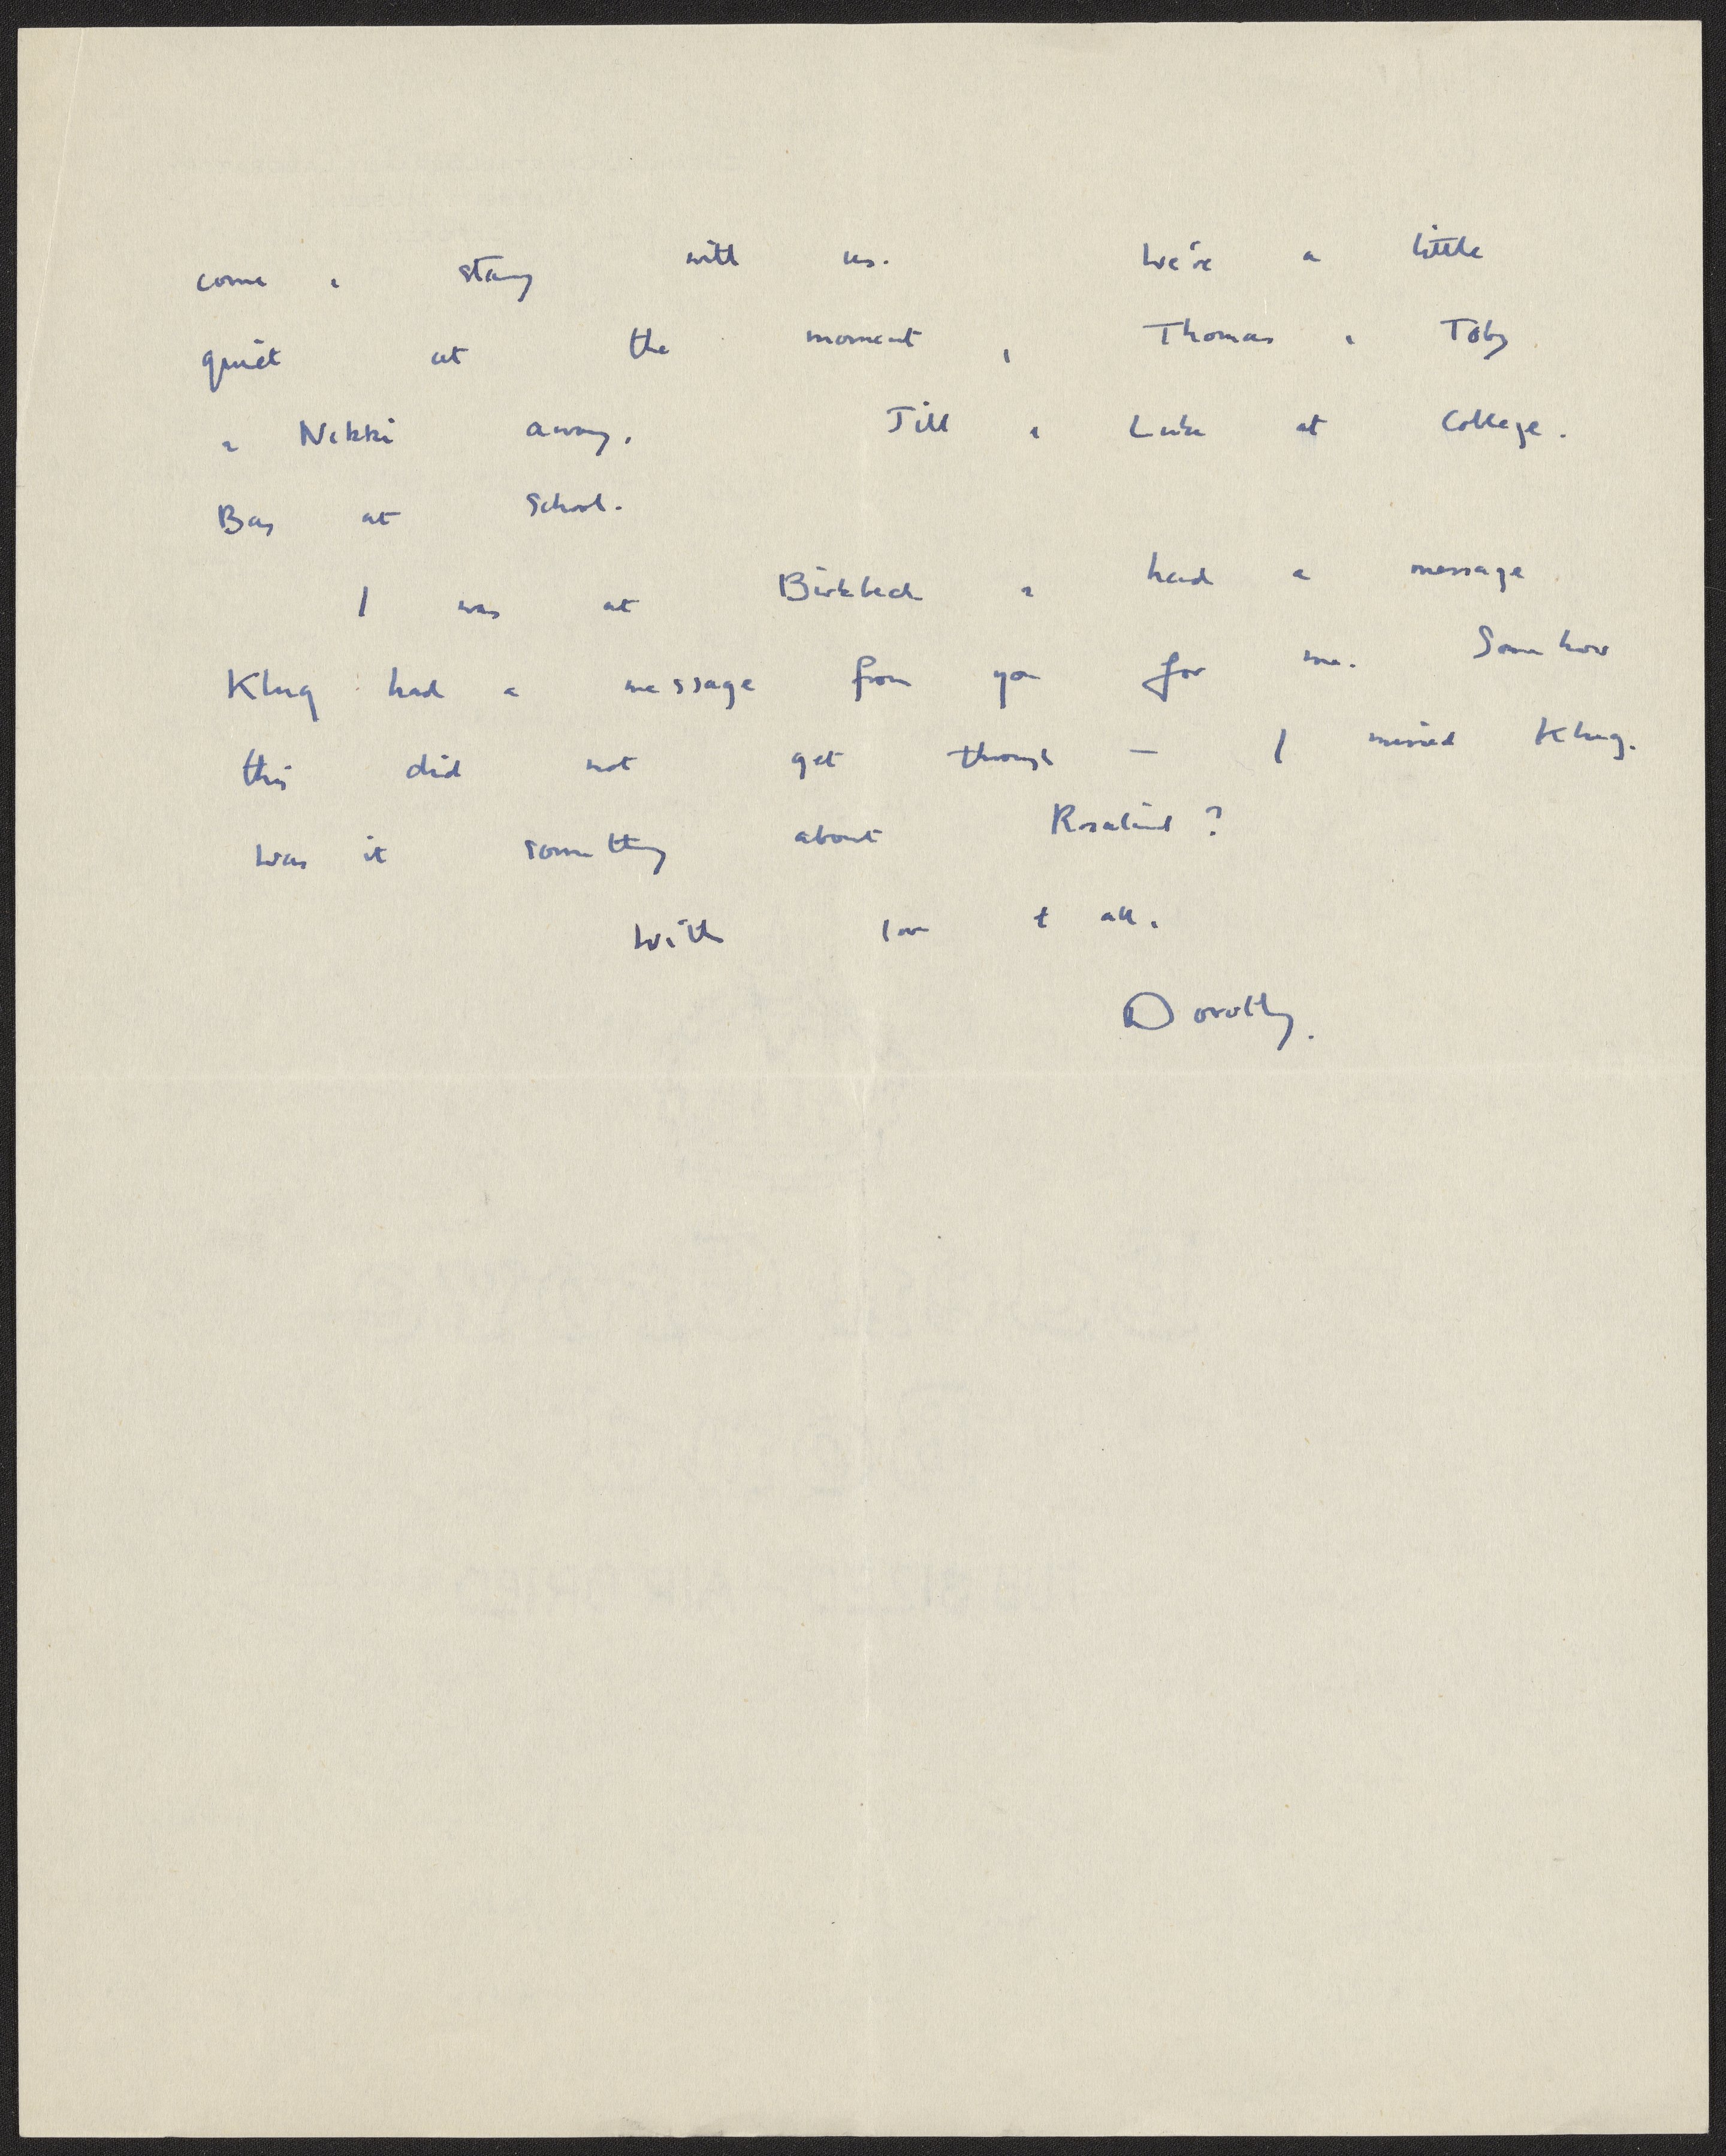 come & stay with us. We're a little
quiet at the moment, Thomas & Toby
& Nikki away. Jill & Luke at College.
Bay at School.
I was at Birkbeck & had a message
Klug had a message from you for me. Somehow
this did not get through — I missed Klug.
Was it something about Rosalind?
With love to all.
Dorothy.